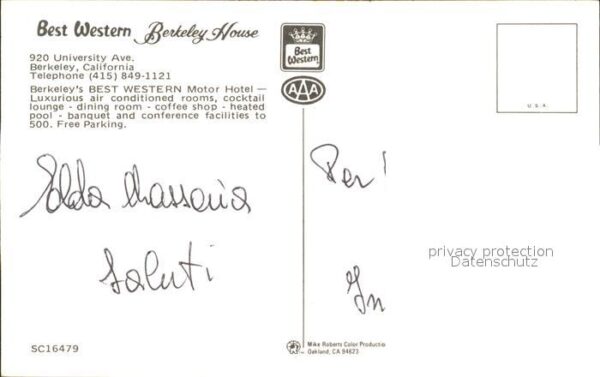 Best Western Berkeley House
920 University Ave.
Berkeley, California
Telephone (415) 849-1121
Berkeley's BEST WESTERN Motor Hotel —
Luxurious air conditioned rooms, cocktail
lounge - dining room - coffee shop - heated
pool - banquet and conference facilities to
500. Free Parking.
Best
Western
AAA
U.S.A.
Elda
Saluti
Per
In
privacy protection
Datenschutz
SC16479
Mike Roberts Color Productio
Oakland, CA 94623